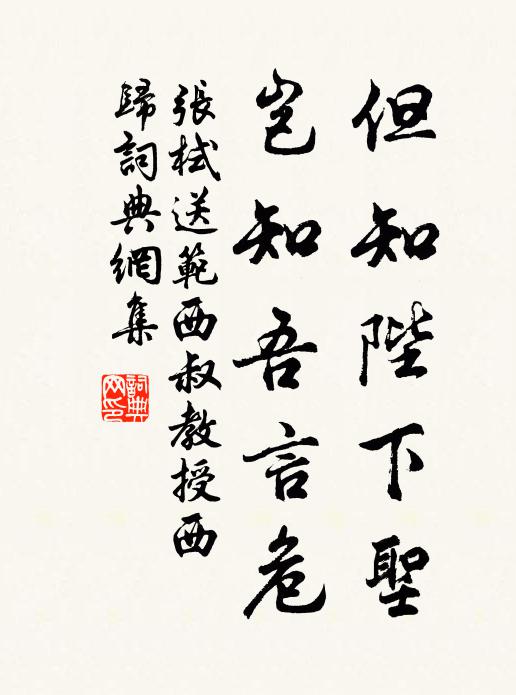 但知陛下聖
豈知吾言危
張栻送範西叔教授西
歸詞典網集
詞典
网印